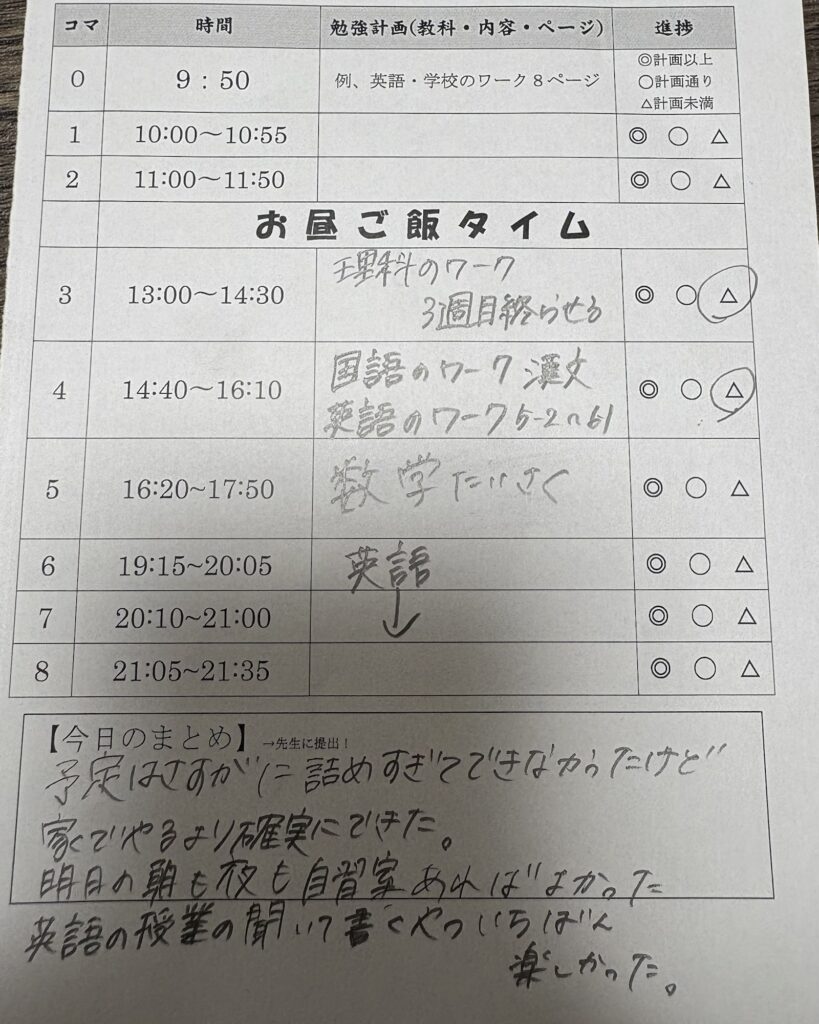 コマ 時間 勉強計画(教科・内容・ページ) 進捗
0 9：50 例、英語・学校のワーク８ページ ◎計画以上
○計画通り
△計画未満
1 10:00～10:55 ◎ ○ △
2 11:00～11:50 ◎ ○ △
お昼ご飯タイム
3 13:00～14:30 理科のワーク
3週目終らせる ◎ ○ △
4 14:40～16:10 国語のワーク 漢文
英語のワーク5-2 ◎ ○ △
5 16:20~17:50 数学たいさく ◎ ○ △
6 19:15~20:05 英語 ◎ ○ △
7 20:10~21:00 ↓ ◎ ○ △
8 21:05~21:35 ◎ ○ △
【今日のまとめ】→先生に提出！
予定はさすがに詰めすぎてできなかったけど
家でやるより確実にできた。
明日の朝も夜も自習室あればよかった
英語の授業の聞いて書くやついちばん
楽しかった。